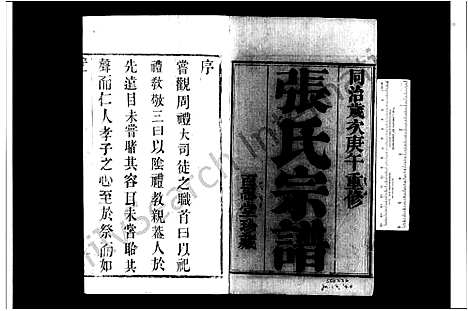 同治歲次庚午重修
張氏宗譜
百忍堂珍藏
序
嘗觀周禮大司徒之職首曰以祀
禮教敬三曰以陰禮教親蓋人於
先遠目未嘗睹其容耳未嘗聆其
聲而仁人孝子之心至於祭而如